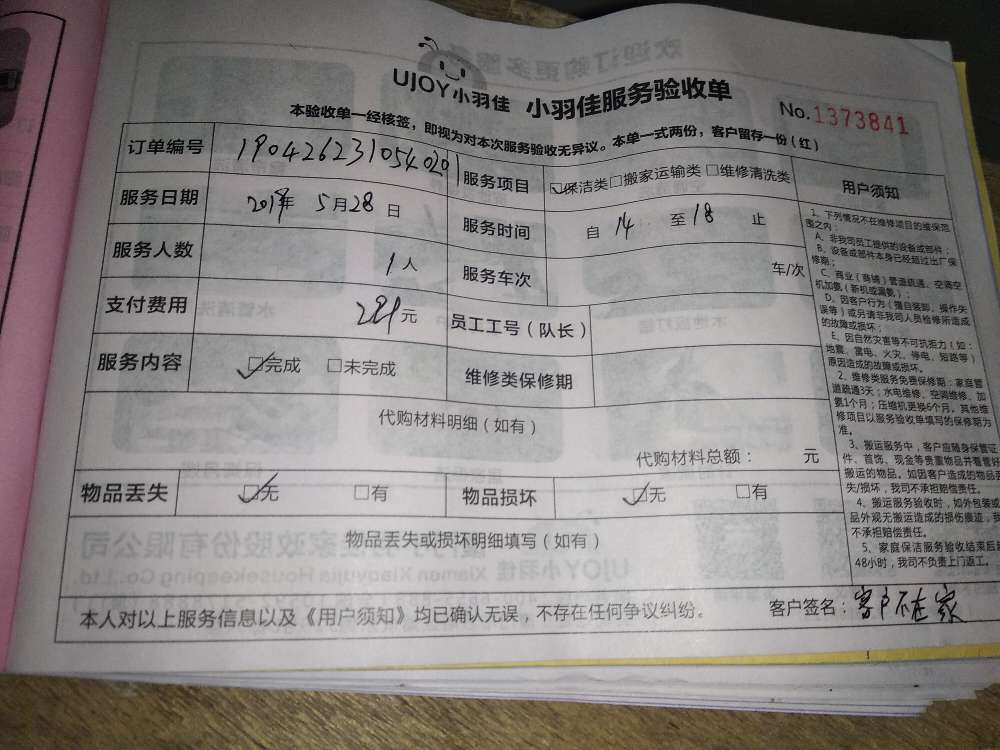 UJOY小羽佳 小羽佳服务验收单
No.1373841
本验收单一经核签，即视为对本次服务验收无异议。本单一式两份，客户留存一份（红）
订单编号 1904262310540201 服务项目 保洁类 搬家运输类 维修清洗类
服务日期 2019年 5月28日 服务时间 自 14 至 18 止
服务人数 1人 服务车次 车/次
支付费用 元 员工工号（队长）
服务内容 完成 未完成 维修类保修期
代购材料明细（如有）
代购材料总额： 元
物品丢失 无 有 物品损坏 无 有
物品丢失或损坏明细填写（如有）
本人对以上服务信息以及《用户须知》均已确认无误，不存在任何争议纠纷。 客户签名：客户不在家
用户须知
1、下列情况不在维修项目的维保范
围之内：
A、非我司员工提供的设备或部件；
B、设备或部件本身已经超过出厂保
修期；
C、商业（商铺）管道疏通、空调空
机加氨（新机或漏氨）；
D、因客户行为（擅自装卸、操作失
误等）或另请非我司人员检修所造成
的故障或损坏；
E、因自然灾害等不可抗拒力（如：
地震、雷电、火灾、停电、短路等）
原因造成的故障或损坏。
2、维修类服务免费保修期：家庭管
道疏通3天；水电维修、空调维修、加
氨1个月；压缩机更换6个月。其他维
修项目以服务验收单填写的保修期为
准。
3、搬运服务中，客户应随身保管证
件、首饰、现金等贵重物品并看管好
搬运的物品。如因客户造成的物品丢
失/损坏，我司不承担赔偿责任。
4、搬运服务验收时，如外包装或
品外观无搬运造成的损伤痕迹，我
不承担赔偿责任。
5、家庭保洁服务验收结束后超
48小时，我司不负责上门返工。
欢迎订购更多服
水管清洗
木地板打蜡
家政股份有限公司
UJOY小羽佳 Xiamen Xiaoyujia Housekeeping Co., Ltd.